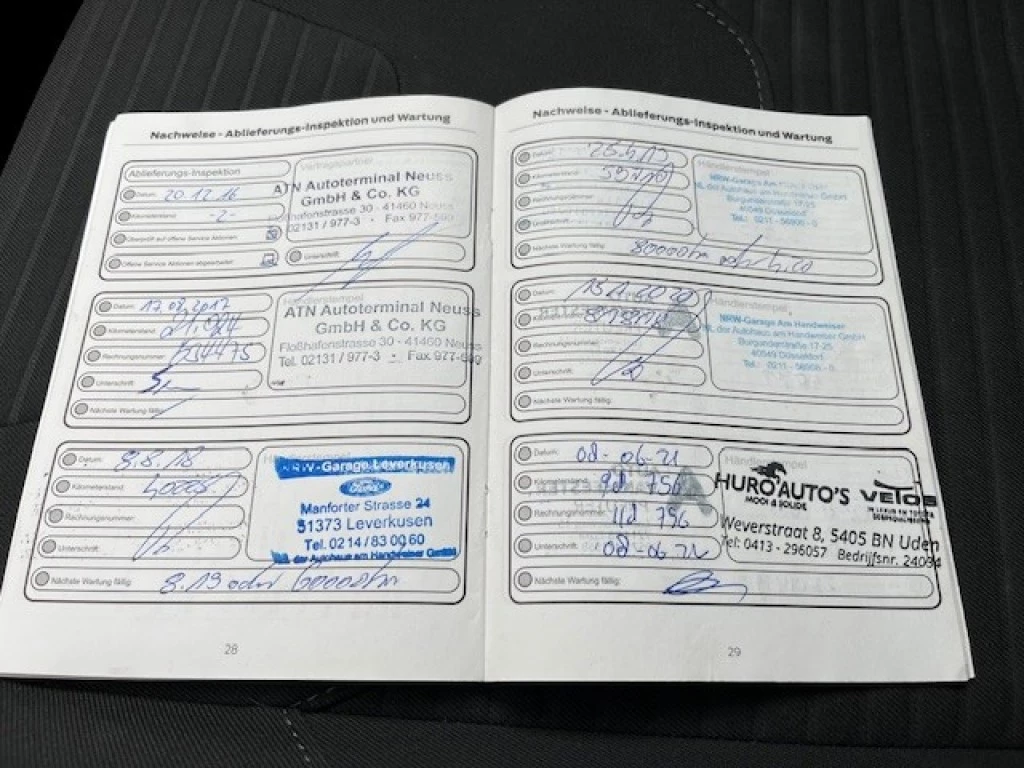 Nachweise - Ablieferungs-Inspektion und Wartung
Ablieferungs-Inspektion
Vertragspartner
Datum: 20.12.16
Kilometerstand: -2-
Überprüft auf offene Service Aktionen:
Offene Service Aktionen abgearbeitet:
Unterschrift:
ATN Autoterminal Neuss
GmbH & Co. KG
Floßhafenstrasse 30 - 41460 Neuss
02131 / 977-3 - Fax 977-599
Datum: 17.08.2017
Kilometerstand:
Rechnungsnummer:
Unterschrift:
Nächste Wartung fällig:
Händlerstempel
ATN Autoterminal Neuss
GmbH & Co. KG
Floßhafenstrasse 30 - 41460 Neuss
Tel. 02131 / 977-3 - Fax 977-599
Datum: 8.8.18
Kilometerstand:
Rechnungsnummer:
Unterschrift:
Nächste Wartung fällig: 8.19 oder 60000km
NRW-Garage Leverkusen
Ford
Manforter Strasse 24
51373 Leverkusen
Tel. 0214 / 83 00 60
NL der Autohaus am Handweiser GmbH
28
Nachweise - Ablieferungs-Inspektion und Wartung
Datum:
Kilometerstand:
Rechnungsnummer:
Unterschrift:
Nächste Wartung fällig: 80000km oder
Händlerstempel
NRW-Garage Am Handweiser
NL der Autohaus am Handweiser GmbH
Burgunderstraße 17-25
40549 Düsseldorf
Tel.: 0211 - 56908 - 0
Datum:
Kilometerstand:
Rechnungsnummer:
Unterschrift:
Nächste Wartung fällig:
Händlerstempel
NRW-Garage Am Handweiser
NL der Autohaus am Handweiser GmbH
Burgunderstraße 17-25
40549 Düsseldorf
Tel.: 0211 - 56908 - 0
Datum: 08-06-21
Kilometerstand: 98 756
Rechnungsnummer:
Unterschrift: 08-06-21
Nächste Wartung fällig:
Händlerstempel
HURO AUTO'S
MOOI & SOLIDE
VETOS
Weverstraat 8, 5405 BN Uden
Tel: 0413 - 296057 Bedrijfsnr. 24094
29